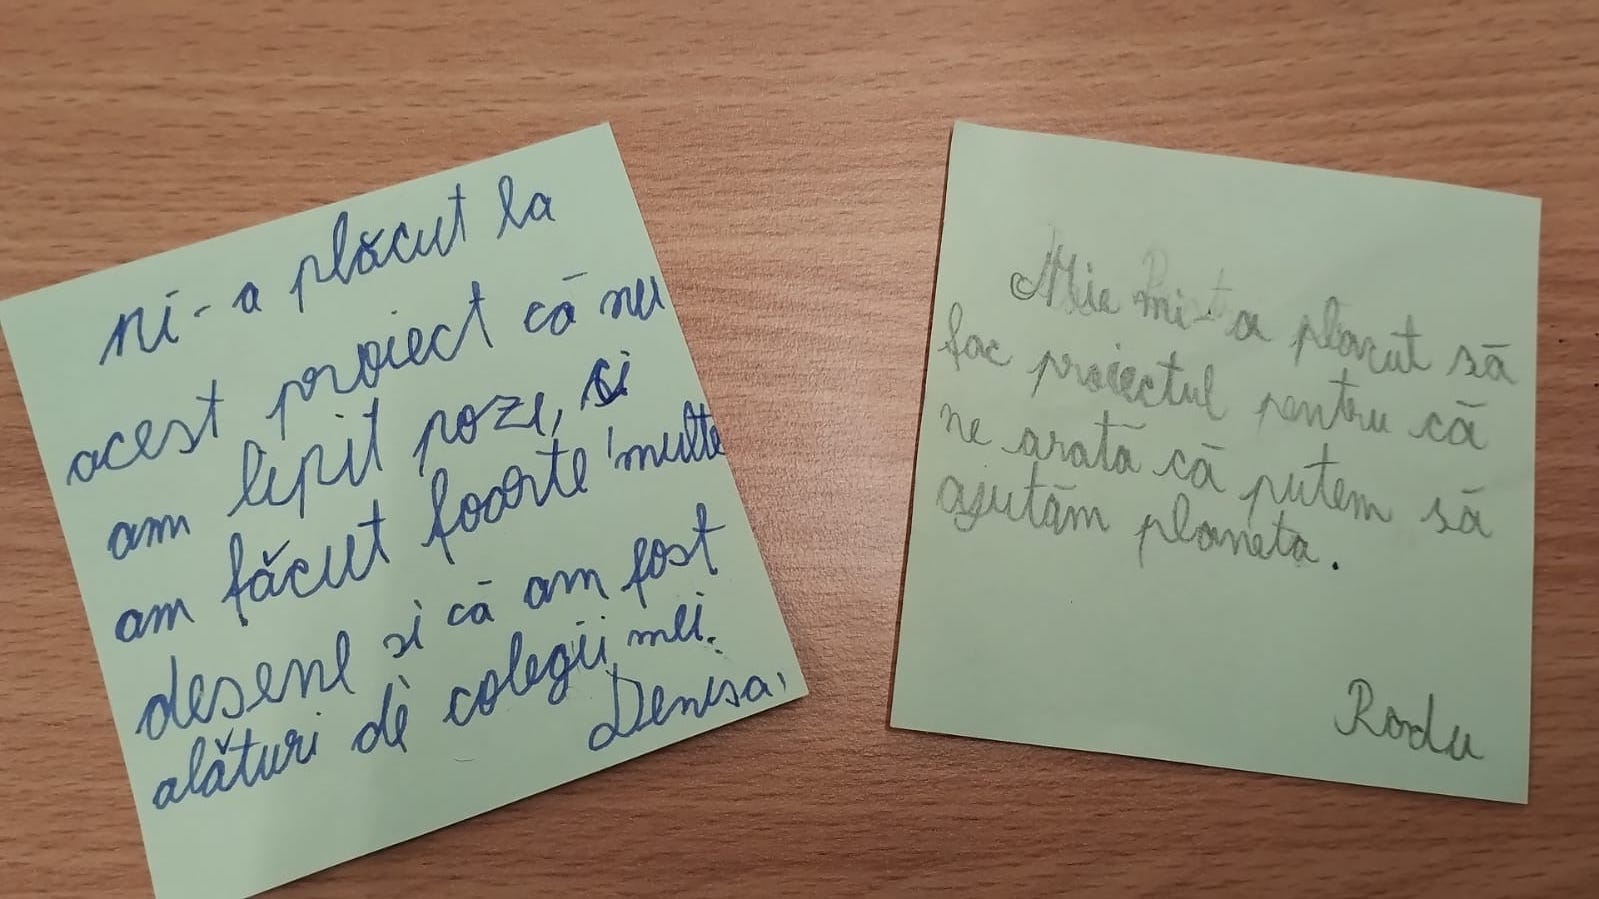 ni-a plăcut la
acest proiect că nu
am lipit poze, și
am făcut foarte multe
desene si că am fost
alături de colegii mei.
Denisa,
Mie mi-a placut să
fac proiectul pentru că
ne arată că putem să
ajutăm planeta.
Radu